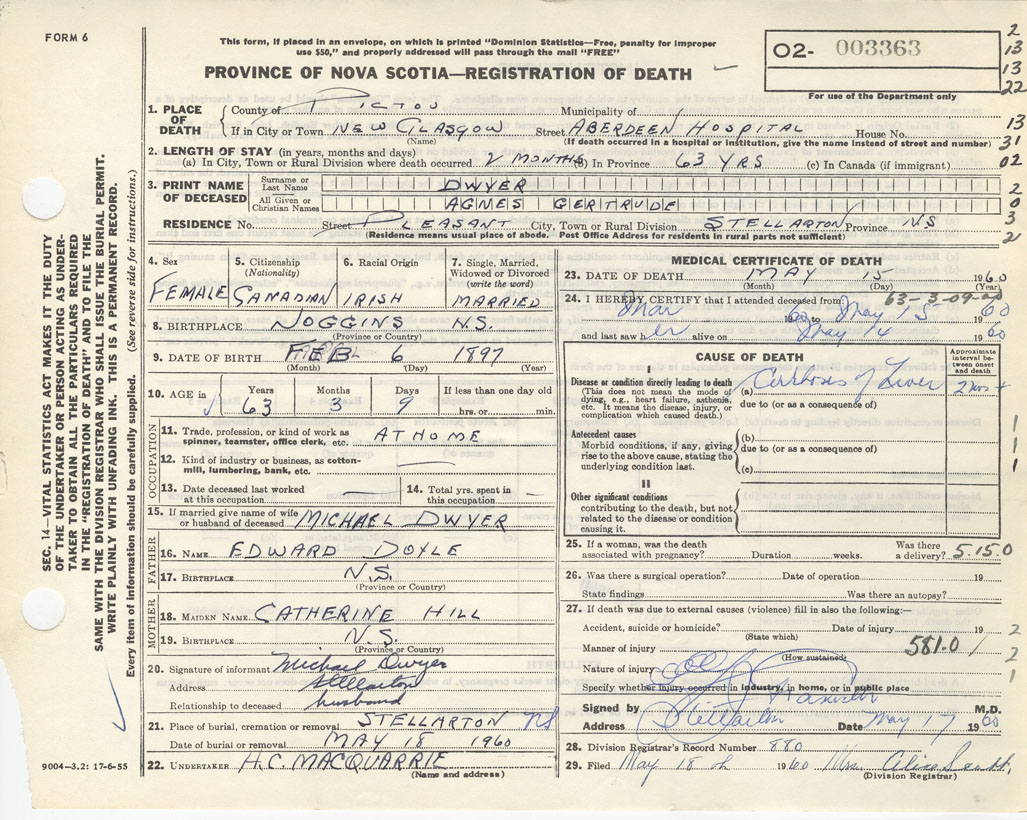 FORM 6
This form, if placed in an envelope, on which is printed "Dominion Statistics—Free, penalty for improper
use $50," and properly addressed will pass through the mail "FREE"
PROVINCE OF NOVA SCOTIA—REGISTRATION OF DEATH
02- 003363
For use of the Department only
2
13
13
22
13
31
02
2
0
3
2
SEC. 14—VITAL STATISTICS ACT MAKES IT THE DUTY
OF THE UNDERTAKER OR PERSON ACTING AS UNDER-
TAKER TO OBTAIN ALL THE PARTICULARS REQUIRED
IN THE "REGISTRATION OF DEATH" AND TO FILE THE
SAME WITH THE DIVISION REGISTRAR WHO SHALL ISSUE THE BURIAL PERMIT.
WRITE PLAINLY WITH UNFADING INK. THIS IS A PERMANENT RECORD.
Every item of information should be carefully supplied. (See reverse side for instructions.)
1. PLACE OF DEATH
County of PICTOU Municipality of
If in City or Town NEW GLASGOW Street ABERDEEN HOSPITAL House No.
(Name) (If death occurred in a hospital or institution, give the name instead of street and number)
2. LENGTH OF STAY (in years, months and days)
(a) In City, Town or Rural Division where death occurred 2 MONTHS (b) In Province 63 YRS (c) In Canada (if immigrant)
3. PRINT NAME OF DECEASED
Surname or Last Name DWYER
All Given or Christian Names AGNES GERTRUDE
RESIDENCE No. Street PLEASANT City, Town or Rural Division STELLARTON Province NS
(Residence means usual place of abode. Post Office Address for residents in rural parts not sufficient)
4. Sex FEMALE
5. Citizenship (Nationality) CANADIAN
6. Racial Origin IRISH
7. Single, Married, Widowed or Divorced (write the word) MARRIED
8. BIRTHPLACE JOGGINS N.S.
(Province or Country)
9. DATE OF BIRTH FEB 6 1897
(Month) (Day) (Year)
10. AGE in Years Months Days If less than one day old
63 3 9 hrs. or min.
OCCUPATION
11. Trade, profession, or kind of work as spinner, teamster, office clerk, etc. AT HOME
12. Kind of industry or business, as cotton-mill, lumbering, bank, etc.
13. Date deceased last worked at this occupation
14. Total yrs. spent in this occupation
15. If married give name of wife or husband of deceased MICHAEL DWYER
FATHER
16. NAME EDWARD DOYLE
17. BIRTHPLACE N.S.
(Province or Country)
MOTHER
18. MAIDEN NAME CATHERINE HILL
19. BIRTHPLACE N.S.
(Province or Country)
20. Signature of informant Michael Dwyer
Address Stellarton
Relationship to deceased husband
21. Place of burial, cremation or removal STELLARTON NS
Date of burial or removal MAY 18 1960
22. UNDERTAKER H.C. MACQUARRIE
(Name and address)
9004—3.2: 17-6-55
MEDICAL CERTIFICATE OF DEATH
23. DATE OF DEATH MAY 15 1960
(Month) (Day)
63-3-09-00
24. I HEREBY CERTIFY that I attended deceased from
Mar 1960 to May 15 1960
and last saw her alive on May 14 1960
CAUSE OF DEATH
Approximate interval between onset and death
I
Disease or condition directly leading to death
(This does not mean the mode of dying, e.g., heart failure, asthenia, etc. It means the disease, injury, or complication which caused death.)
(a) Cirrhosis of Liver 2 mos +
due to (or as a consequence of)
Antecedent causes
Morbid conditions, if any, giving rise to the above cause, stating the underlying condition last.
(b)
due to (or as a consequence of)
(c)
1
1
1
II
Other significant conditions
contributing to the death, but not related to the disease or condition causing it.
25. If a woman, was the death associated with pregnancy? Duration weeks. Was there a delivery? 5.15.0
26. Was there a surgical operation? Date of operation 19
State findings Was there an autopsy?
27. If death was due to external causes (violence) fill in also the following:—
Accident, suicide or homicide? Date of injury 19
(State which)
Manner of injury 581.0
(How sustained)
Nature of injury
Specify whether injury occurred in industry, in home, or in public place
2
2
1
Signed by M.D.
Address Stellarton Date May 17 1960
28. Division Registrar's Record Number 880
29. Filed May 18th 1960 Mrs. Alice
(Division Registrar)